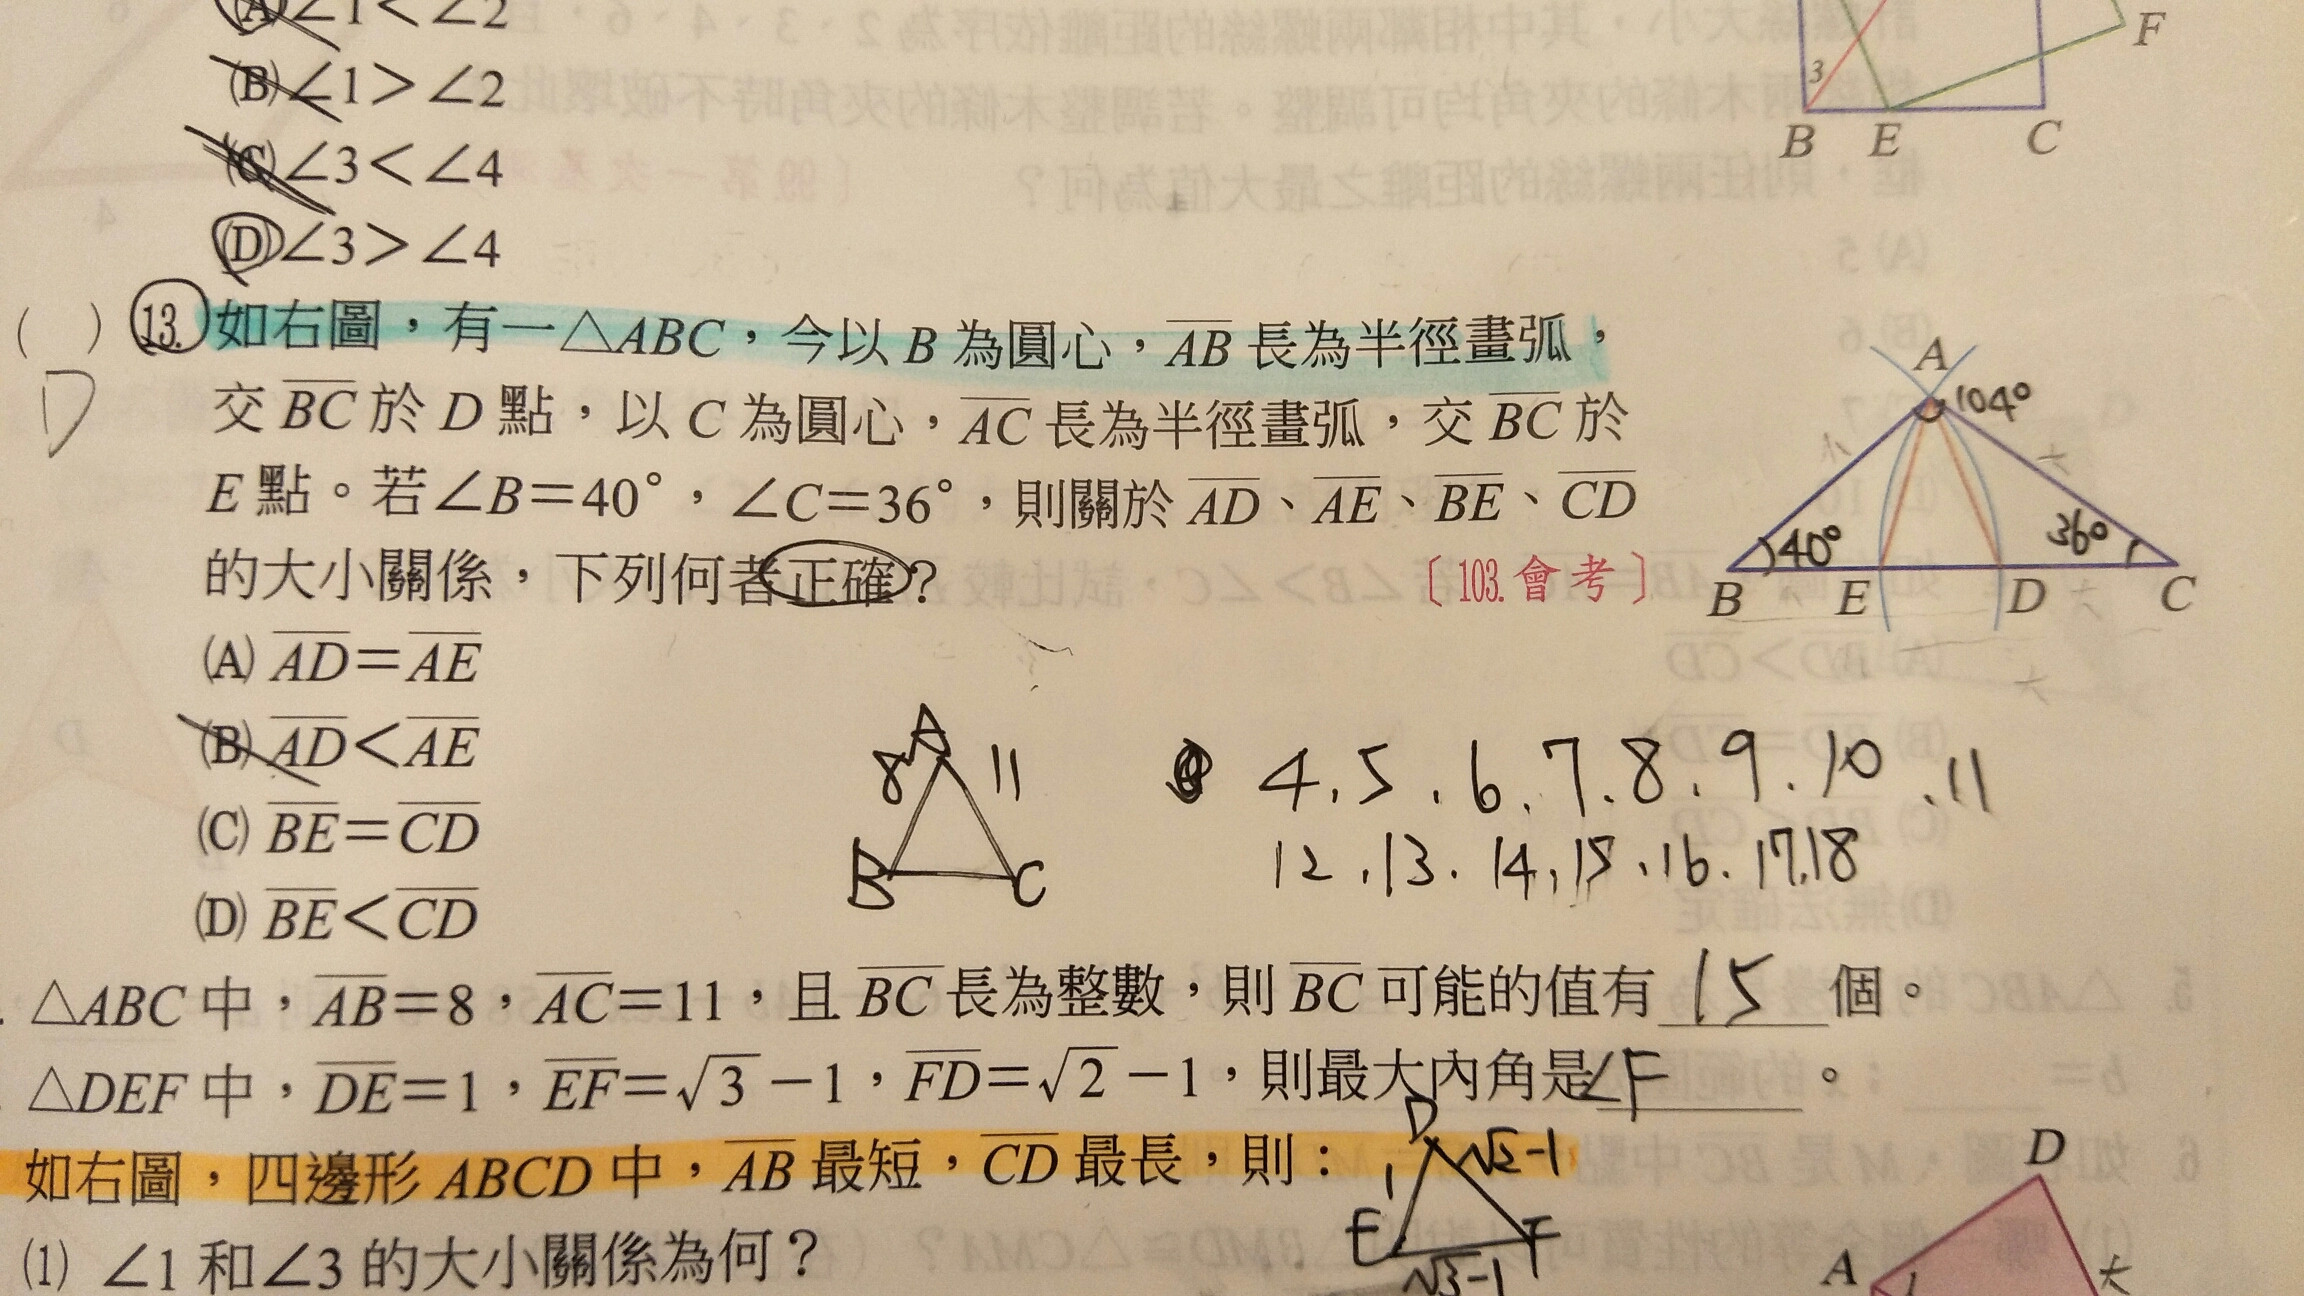 (A) ∠1<∠2
(B) ∠1>∠2
(C) ∠3<∠4
(D) ∠3>∠4
3
B E C
F
( ) 13. 如右圖，有一△ABC，今以 B 為圓心，AB 長為半徑畫弧，
D
交 BC 於 D 點，以 C 為圓心，AC 長為半徑畫弧，交 BC 於
E 點。若∠B=40°，∠C=36°，則關於 AD、AE、BE、CD
的大小關係，下列何者正確？
〔103.會考〕
A
104°
小
大
40°
36°
B E D C
小
大
大
(A) AD=AE
(B) AD<AE
(C) BE=CD
(D) BE<CD
A
8
11
B
C
4.5.6.7.8.9.10.11
12.13.14.15.16.17.18
△ABC 中，AB=8，AC=11，且 BC 長為整數，則 BC 可能的值有 15 個。
△DEF 中，DE=1，EF=√3−1，FD=√2−1，則最大內角是∠F。
如右圖，四邊形 ABCD 中，AB 最短，CD 最長，則：
(1) ∠1 和∠3 的大小關係為何？
D
1
√2-1
E
F
√3-1
D
A
1
大